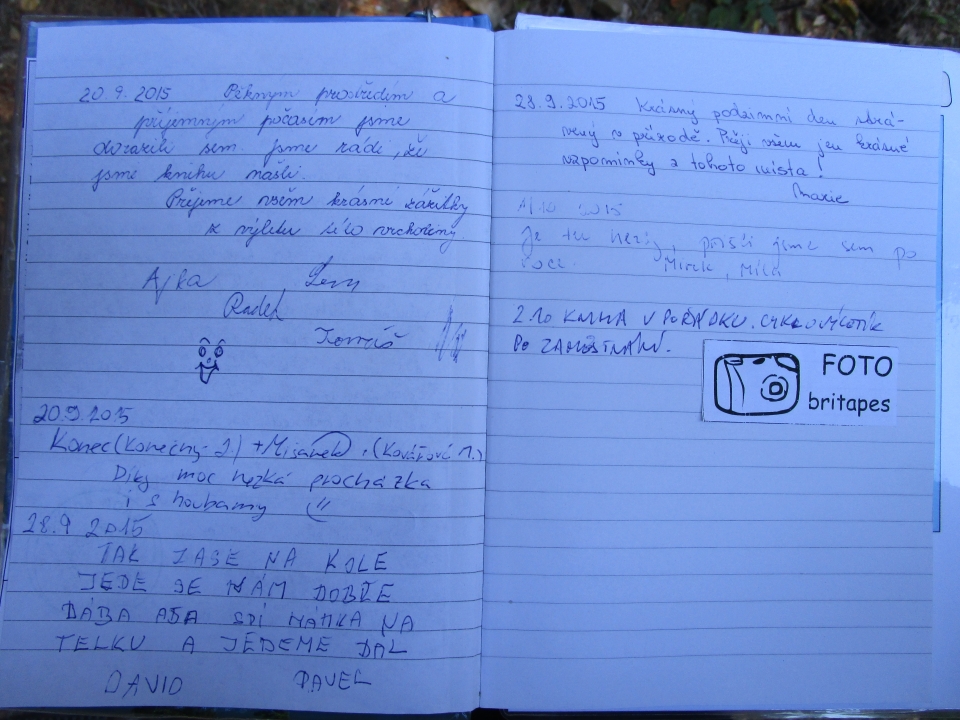 20.9.2015 Pěkným prostředím a
příjemným počasím jsme
dorazili sem. jsme rádi, že
jsme knihu našli.
Přejeme všem krásné zážitky
z výletu této vrcholiny.
Ajka
Radek
Tomáš
20.9.2015
Konec (Konečný J.) + (Kovářová M.)
Díky moc hezká procházka
i s houbamy
28.9 2015
TAK ZASE NA KOLE
JEDE SE NÁM DOBŘE
NA
TELKU A JEDEME DÁL
DAVID PAVEL
28.9.2015 Krásný podzimní den strá-
vený v přírodě. Přeji všem jen krásné
vzpomínky z tohoto místa!
Marie
2015
Je tu hezky, přišli jsme sem po
roce. Mirek, Míla
2.10 KNIHA V POŘÁDKU. CYKLOVÝLETNÍK
PO ZAMĚSTNÁNÍ.
FOTO
britapes